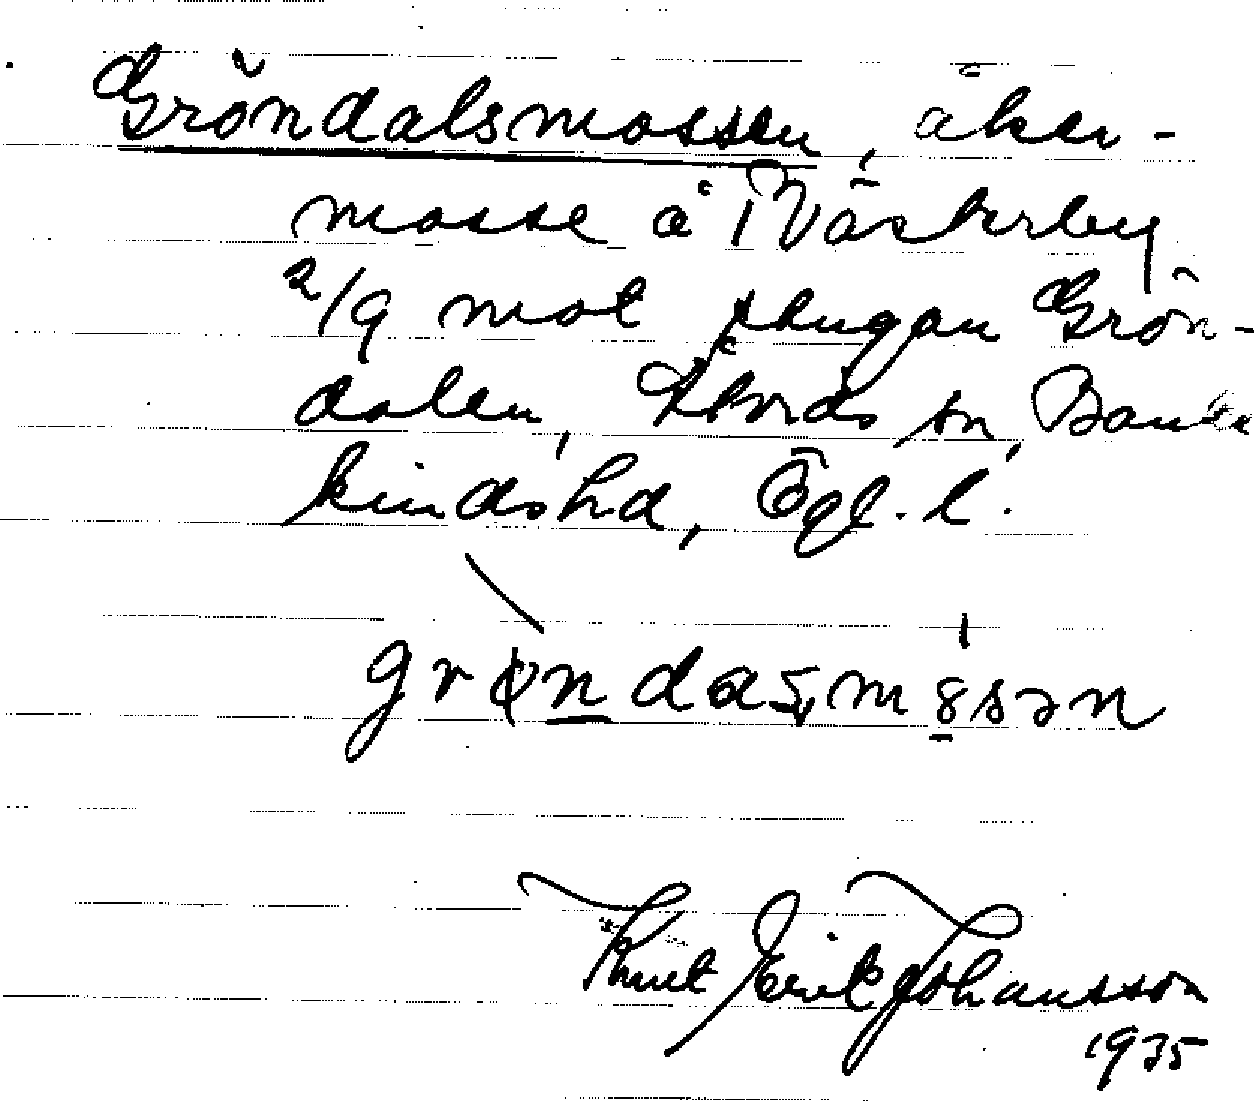 Gröndalsmossen, åker-
mosse å Västerby
2/9 mot stugan Grön-
dalen, Åtvids sn, Banke
kinds hd, Ögl. l.
Knut Erik Johansson
1935